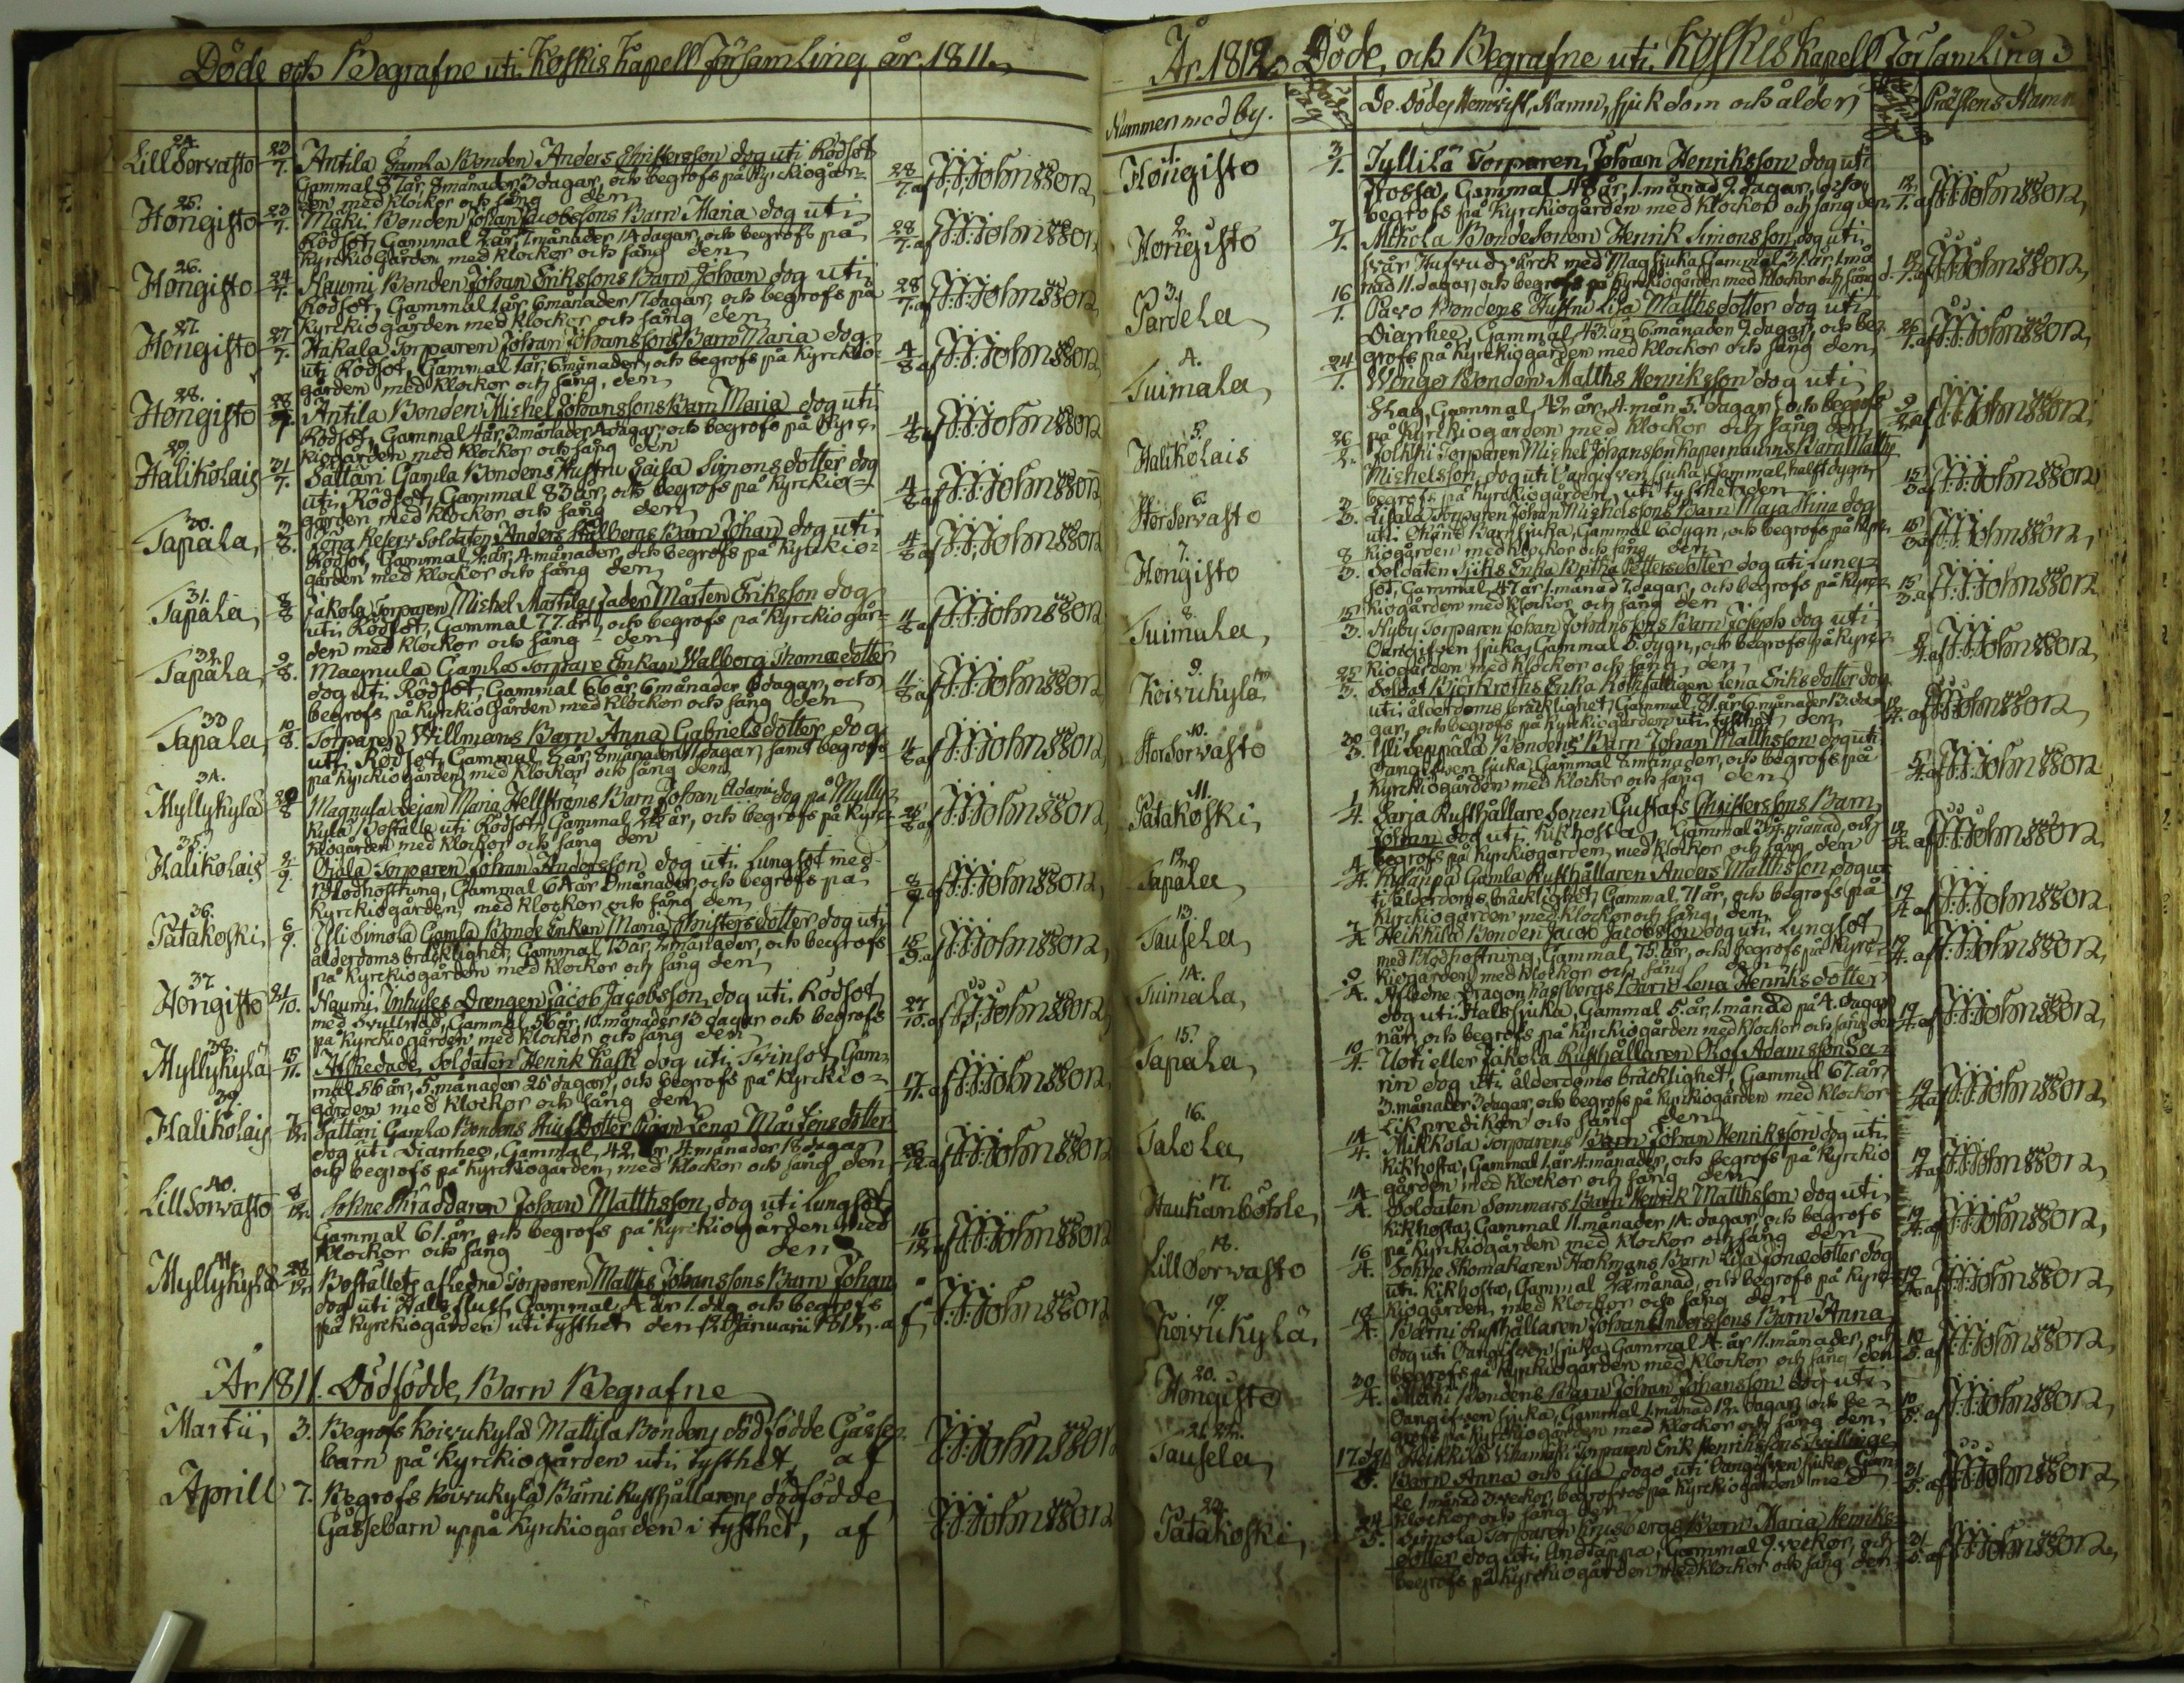 Döde och Begrafne uti Koskis Kapell Församling år 1811.
24.
LillSorvasto 23/7. Antila Gamla Bonden Anders Christersson dog uti Rödsot
Gammal 87 år 8 månader 3 dagar, och begrofs på Kyrckiogår=
den med klockor och sång den 28/7. af J:J:Johnsson
25.
Hongisto 23/7. Mäki Bonden Johan Jacobssons Barn Maria dog uti
Rödsot, Gammal 2 år, 7 månader 14 dagar, och begrofs på
Kyrckiogården med klockor och sång den 28/7. af J:J:Johnsson
26.
Hongisto 24/7. Naumi Bonden Johan Erikssons Barn Johan dog uti
Rödsot, Gammal 1 år 6 månader 7 dagar, och begrofs på
Kyrckiogården med klockor och sång den 28/7. af J:J:Johnsson
27.
Hongisto 27/7. Hakala Torparen Johan Johanssons Barn Maria dog
uti Rödsot, Gammal 1 år, 6 månader, och begrofs på Kyrckio=
gården med klockor och sång, den 4/8 af J:J:Johnsson
28.
Hongisto 28/7 Antila Bonden Michel Johanssons Barn Maria dog uti
Rödsot, Gammal 4 år, 3 månader 4 dagar, och begrofs på Kyrc=
kiogården med klockor och sång den 4/8 af J:J:Johnsson
29.
Halikolais 31/7. Sattari Gamla Bondens Hustru Caisa Simonsdotter dog
uti Rödsot, Gammal 83 år, och begrofs på Kyrckio=
gården med klockor och sång den 4/8 af J:J:Johnsson
30.
Tapala, 3/8. Soldaten Anders Stålbergs Barn Johan dog uti
Rödsot, Gammal 2 år, 4 månader, och begrofs på Kyrckio=
gården med klockor och sång den 4/8 af J:J:Johnsson
31.
Tapala 8/8 Jakola Torparen Michel Mattilas fader Mårten Eriksson dog
uti Rödsot, Gammal 77 år, och begrofs på Kyrckiogår=
den med klockor och sång den 11/8 af J:J:Johnsson
32.
Tapala, 9/8. Magnula Gamla Torpare Enkan Walborg Thomædotter
dog uti Rödsot, Gammal 66 år 6 månader 6 dagar, och
begrofs på Kyrkiogården med klockor och sång den 11/8 af J:J:Johnsson
33
Tapala, 10/8. Torparen Willmans Barn Anna Gabrielsdotter dog
uti Rödsot, Gammal 8 år, 8 månader 11 dagar, samt begrofs
på Kyrckiogården med klockor och sång den 11/8 af J:J:Johnsson
34.
Myllykylä 20/8 Magnula Pejan Maria Hellströms Barn Johan Adam dog på Mylly=
kylä Boställe uti Rödsot, Gammal 2½ år, och begrofs på Kyrc=
kiogården med klockor och sång den 25/8 af J:J:Johnsson
35.
Halikolais 2/9. Ojala Torparen Johan Andersson dog uti Lungsot med
Blodhostning, Gammal 64 år månader, och begrofs på
Kyrckiogården, med klockor och sång den 8/9 af J:J:Johnsson
36.
Patakoski, 6/9. Ylli Simola Gamla Bonde Enkan Maria Christersdotter dog uti
ålderdoms bräcklighet, Gammal 73 år, 2 månader, och begrofs
på Kyrckiogården med klockor och sång den 15/9. af J:J:Johnsson
37
Hongisto 21/10. Naumi Inhyses Drengen Jacob Jacobsson dog uti Rödsot
med svullnad, Gammal 56 år, 10 månader 13 dagar och begrofs
på Kyrckiogården med klockor och sång den 27/10. af J:J:Johnsson
38.
Myllykylä 15/11. Afskedade Soldaten Henrik Kask dog uti Tvinsot, Gam=
mal 56 år, 5 månader 25 dagar, och begrofs på Kyrckio=
gården med klockor och sång den 17/11. af J:J:Johnsson
39.
Halikolais 7/12 Sattari Gamla Bondens Stiufdotter Pigan Lena Mårtensdotter
dog uti Diarrhee, Gammal 42 år, 4 månader 18 dagar,
och begrofs på Kyrckiogården, med klockor och sång den J:J:Johnsson
40.
LillSorvasto 8/12. Sokne Skräddaren Johan Matthsson dog uti Lungsot,
Gammal 61 år, och begrofs på Kyrckiogården med
klockor och sång den 15/12 af J:J:Johnsson
41.
Myllykylä 28/12 Boställets afledne Torparen Matths Johanssons Barn Johan
dog uti Halsfluss, Gammal 4 år 1 dag och begrofs
på Kyrckiogården uti tysthet den Januarii 1812. af J:J:Johnsson
År 1811. Dödfödde Barn Begrafne
Martii, 3. Begrofs Koivukylä Mattila Bondens dödfödde Gåsse=
barn på Kyrckiogården uti tysthet, af J:J:Johnsson
Aprill 7. Begrofs Koivukylä Bärni Rusthållarens dödfödde
Gåssebarn uppå Kyrckiogården i tysthet, af J:J:Johnsson
År 1812. Döde, och Begrafne uti Koskis Kapell Församling
Nummer med by. De Dödas Hemvist, Namn, sjukdom och ålder, Prästens Namn
1
Hongisto 3/1. Jyllilä Torparen, Johan Henriksson dog uti
Rossa, Gammal 48 år, 1 månad 9 dagar, och
begrofs på Kyrckiogården med klockor och sång den 12/1. af J:J:Johnsson
2.
Hongisto 7/1. Mikola Bonde Sonen Henrik Simonsson dog uti
svår Hufvudvärck med Magsjuka Gammal 31 år, 1 må=
nad 11 dagar, och begrofs på Kyrckiogården med klockor och sång d. 12/1. af J:J:Johnsson
3.
Pardela 16/1. Pavo Bondens Hustru Lisa Matthsdotter dog uti
Diarrhee, Gammal 43 år, 6 månader 9 dagar, och be=
grofs på Kyrckiogården med klockor och sång den 26/1. af J:J:Johnsson
4.
Tuimala, 24/1. Winge Bonden Matths Henriksson dog uti
Slag, Gammal 42 år, 4 mån 5 dagar, och begrofs
på Kyrckiogården med klockor och sång den 9/2 af J:J:Johnsson
5.
Halikolais 26/2. Jolkki Torparen Michel Johansson Kapernaums Barn Matths
Michelsson, dog uti Oangifven sjuka, Gammal halft dygn,
begrofs på Kyrckiogården, uti tysthet den 15/3 af J:J:Johnsson
6.
StorSorvasto 3/3. Lisala Torparen Johan Michelssons Barn Maja Stina dog
uti Okänd Barnsjuka, Gammal 6 dygn, och begrofs på Kyrc=
kiogården med klockor och sång den 15/3 af J:J:Johnsson
7.
Hongisto 8/3. Soldaten Siiks Enka Brita Pettersdotter dog uti Lung=
sot, Gammal 47 år 1 månad 7 dagar, och begrofs på Kyrc=
kiogården med klockor och sång den 15/3. af J:J:Johnsson
8.
Tuimala, 15/3. Nyby Torparen Johan Johanssons Barn Joseph dog uti
Oangifven sjuka, Gammal 5 dygn, och begrofs på Kyrc=
kiogården med klockor och sång, den J:J:Johnsson
9.
Koivukylä, 25/3. Soldat Björkroths Enka Rotefattigen Lena Eriksdotter dog
uti ålderdoms bräcklighet, Gammal 81 år 6 månader 13 da=
gar, och begrofs på Kyrckiogården uti tysthet, den J:J:Johnsson
10.
StorSorvasto 30/3. Ylli Seppälä Bondens Barn Johan Matthsson dog uti
Oangifven sjuka, Gammal 2 månader, och begrofs på
Kyrckiogården med klockor och sång den 5/4 af J:J:Johnsson
11.
Patakoski, 1/4. Sarja Rusthållare Sonen Gustafs Christerssons Barn
Johan dog uti Kikhosta, Gammal 3½ månad, och
begrofs på Kyrckiogården, med klockor och sång den 12/4. af J:J:Johnsson
12.
Tapala 4/4. Gamla Rusthållaren Anders Matthsson, dog u=
ti ålderdoms bräcklighet, Gammal 71 år, och begrofs på
Kyrckiogården med klockor och sång, den 12/4 af J:J:Johnsson
13.
Tausela, 7/4. Heikkilä Bonden Jacob Jacobsson dog uti Lungsot
med Blodhostning, Gammal 75 år, och begrofs på Kyrc=
kiogården med klockor och sång den 12/4. af J:J:Johnsson
14.
Tuimala, 8/4. Afledne Dragon Hagbergs Barn Lena Henriksdotter
dog uti Halssjuka, Gammal 5 år, 1 månad på 4 dagar
när, och begrofs på Kyrckiogården med klockor och sång den 19/4. af J:J:Johnsson
15.
Tapala, 10/4. Uoti eller Jakola Rusthållaren Olof Adamsson Sa=
rin dog uti ålderdoms bräcklighet, Gammal 67 år,
3 månader 3 dagar, och begrofs på Kyrckiogården med klockor
Likpredikan och sång den 19/4 af J:J:Johnsson
16.
Talola, 14/4. Mikkola Torparens Barn Johan Henriksson dog uti
Kikhosta, Gammal 1 år 4 månader, och begrofs på Kyrckio
gården med klockor och sång den 19/4 af J:J:Johnsson
17.
Haukanböhle, 14/4. Soldaten Sommars Barn Henrik Matthsson dog uti
Kikhosta, Gammal 11 månader 14 dagar, och begrofs
på Kyrckiogården med klockor och sång den 19/4. af J:J:Johnsson
18.
LillSorvasto 16/4. Sokne Skomakaren Hackmans Barn Lisa Jonædotter dog
uti Kikhosta, Gammal månad, och begrofs på Kyrc=
kiogården, med klockor och sång den 19/4 af J:J:Johnsson
19.
Koivukylä, Bärni Rusthållaren Johan Anderssons Barn Anna
dog uti Oangifven sjuka, Gammal 4 år 11 månader, och
begrofs på Kyrckiogården med klockor och sång den 10/5. af J:J:Johnsson
20.
Hongisto 30/4. Mäki Bondens Barn Johan Johansson dog uti
Oangifven sjuka, Gammal 1 månad 12 dagar, och be=
grofs på Kyrckiogården med klockor och sång den, 10/5. af J:J:Johnsson
21. 22.
Tausela, Heikkilä Torparen Erik Henrikssons Tvillinge
Barn Anna och Lisa dogo uti Oangifven sjuka, Gam=
le 1 månad 3 veckor, begrofvos på Kyrckiogården med
klockor och sång den 31/5. af J:J:Johnsson
Patakoski, 24/5. Simola Torparen Krusbergs Barn Maria Henriks=
dotter dog uti Andtäppa, Gammal 9 veckor, och
begrofs på Kyrckiogården med klockor och sång den 31/5. af J:J:Johnsson